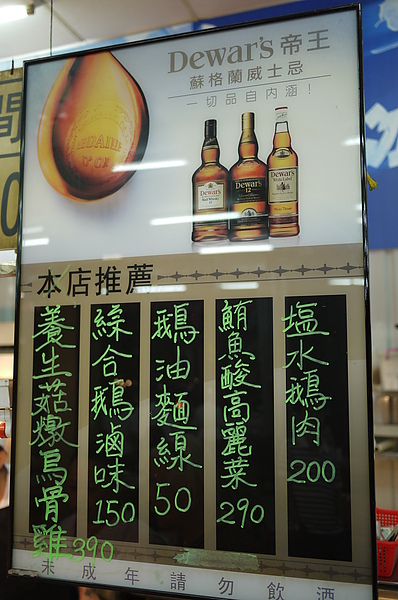 Dewar's 帝王
蘇格蘭威士忌
一切品自内涵!
Dewar's
Dewar's
12
Dewar's
White Label
本店推薦
養生菇燉烏骨雞 390
綜合鵝滷味 150
鵝油麵線 50
鮪魚酸高麗菜 290
塩水鵝肉 200
未成年請勿飲酒
間